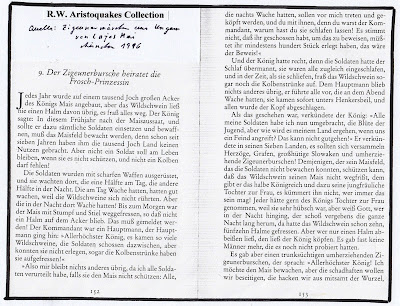 R.W. Aristoquakes Collection
Quelle: Zigeunermärchen aus Ungarn
von Lajos Mai
München 1996
9. Der Zigeunerbursche heiratet die
Frosch-Prinzessin
Jedes Jahr wurde auf einem tausend Joch großen Acker
des Königs Mais angebaut, aber das Wildschwein ließ
nie einen Halm davon übrig, es fraß alles weg. Der König
sagte: In diesem Frühjahr nach der Maisaussaat, und
sollte er dazu sämtliche Soldaten einsetzen und bewaff-
nen, muß das Maisfeld bewacht werden, denn schon seit
sieben Jahren haben ihm die tausend Joch Land keinen
Nutzen gebracht. Aber nicht ein Soldat soll am Leben
bleiben, wenn sie es nicht schützen, und nicht ein Kolben
darf fehlen!
Die Soldaten wurden mit scharfen Waffen ausgerüstet,
und sie wachten dort, die eine Hälfte am Tag, die andere
Hälfte in der Nacht. Die am Tag Wache hatten, hatten gut
wachen, weil die Wildschweine sich nicht rührten. Aber
die in der Nacht dort Wache hatten! Bis zum Morgen war
der Mais mit Stumpf und Stiel weggefressen, so daß nicht
ein Halm auf dem Acker blieb. Das muß gemeldet wer-
den! Der Kommandant war ein Hauptmann, der Haupt-
mann ging hin: »Allerhöchster König, es kamen so viele
Wildschweine, die Soldaten schossen dazwischen, aber
konnten sie nicht erlegen, sogar die Kolbenstrünke haben
sie aufgefressen!«
»Also mir bleibt nichts anderes übrig, da ich alle Solda-
ten verurteilt habe, falls sie den Mais nicht schützen: Alle,
152
die nachts Wache hatten, sollen vor mich treten und ge-
köpft werden, und du mit ihnen, denn du warst der Kom-
mandant, warum hast du sie schlafen lassen! Es stimmt
nicht, daß ihr geschossen habt, um das zu beweisen, müß-
tet ihr mindestens hundert Stück erlegt haben, das wäre
der Beweis!«
Und der König hatte recht, denn die Soldaten hatte der
Schlaf übermannt, sie waren alle zugleich eingeschlafen,
und in der Zeit, als sie schliefen, fraß das Wildschwein so-
gar noch die Kolbenstrünke auf. Dem Hauptmann blieb
nichts anderes übrig, er führte alle vor, die an dem Abend
Wache hatten, sie kamen sofort unters Henkersbeil, und
allen wurde der Kopf abgeschlagen.
Als das geschehen war, verkündete der König: »Alle
meine Soldaten habe ich nun umgebracht, die Blüte der
Jugend, aber wie wird es meinem Land ergehen, wenn uns
ein Feind angreift? Das kann nicht gutgehen!« Er verkün-
dete in seinen Sieben Landen, es sollten sich versammeln
Herzöge, Grafen, großfüßige Slowaken und umherzie-
hende Zigeunerburschen! Demjenigen, der sein Maisfeld,
das die Soldaten nicht bewachen konnten, schützen kann,
daß das Wildschwein seinen Mais nicht wegfrißt, dem
gibt er das halbe Königreich und dazu seine jungfräuliche
Tochter zur Frau, es kümmert ihn nicht, wer immer das
sein mag! Jeder hätte gern des Königs Tochter zur Frau
genommen, weil sie sehr hübsch war, aber weiß Gott, wer
in der Nacht hinging, der schoß vergebens die ganze
Nacht lang herum, da hatte das Wildschwein schon zehn,
fünfzehn Halme gefressen. Aber wer nur einen Halm ab-
beißen ließ, den ließ der König köpfen. Es gab fast keine
Männer mehr, die es noch nicht probiert hatten.
Es gab aber einen trunksüchtigen umherziehenden Zi-
geunerburschen, der sprach: »Allerhöchster König! Ich
möchte den Mais bewachen, aber die schadhaften wollen
wir beseitigen, die hacken wir aus mitsamt der Wurzel,
153